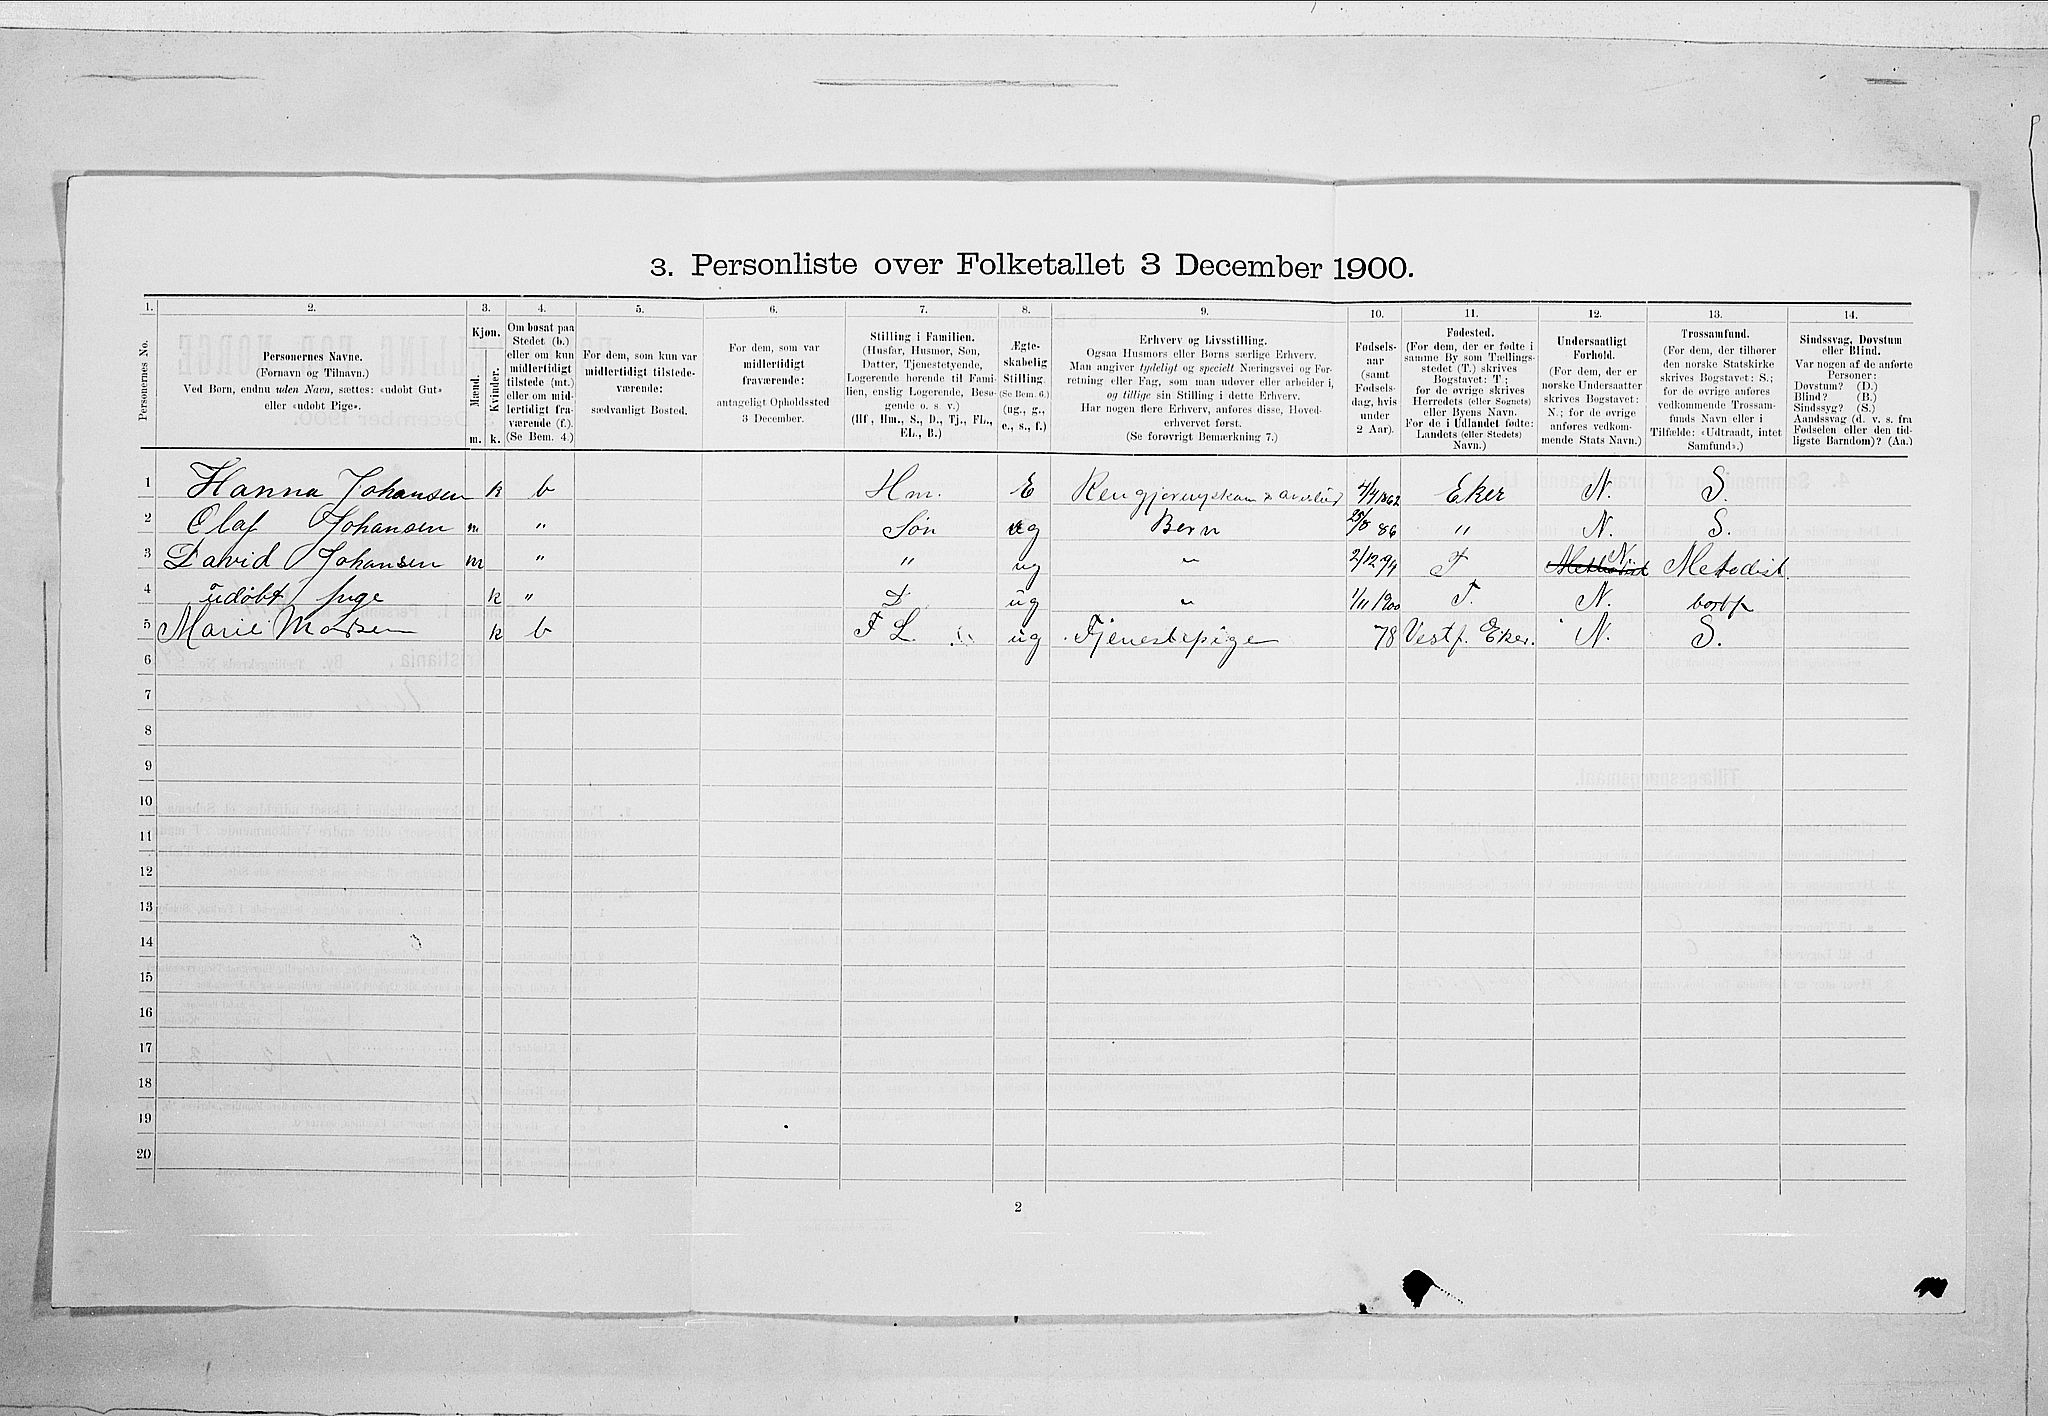 3. Personliste over Folketallet 3 December 1900.
1. 2. 3. 4. 5. 6. 7. 8. 9. 10. 11. 12. 13. 14.
Personernes No.
Personernes Navne.
(Fornavn og Tilnavn.)
Ved Børn, endnu uden Navn, sættes: «udøbt Gut»
eller «udøbt Pige».
Kjøn.
Mænd.
Kvinder.
m. k.
Om bosat paa
Stedet (b.)
eller om kun
midlertidigt
tilstede (mt.)
eller om mid-
lertidigt fra-
værende (f.).
(Se Bem. 4.)
For dem, som kun var
midlertidigt tilstede-
værende:
sædvanligt Bosted.
For dem, som var
midlertidigt
fraværende:
antageligt Opholdssted
3 December.
Stilling i Familien.
(Husfar, Husmor, Søn,
Datter, Tjenestetyende,
Logerende hørende til Fami-
lien, enslig Logerende, Besø-
gende o. s. v.)
(Hf., Hm., S., D., Tj., FL.,
EL., B.)
Ægte-
skabelig
Stilling.
(Se Bem. 6.)
(ug., g.,
e., s., f.)
Erhverv og Livsstilling.
Ogsaa Husmors eller Børns særlige Erhverv.
Man angiver tydeligt og specielt Næringsvei og For-
retning eller Fag, som man udøver eller arbeider i,
og tillige sin Stilling i dette Erhverv.
Har nogen flere Erhverv, anføres disse, Hoved-
erhvervet først.
(Se forøvrigt Bemærkning 7.)
Fødsels-
aar
(samt
Fødsels-
dag, hvis
under
2 Aar).
Fødested.
(For dem, der er fødte i
samme By som Tællings-
stedet (T.) skrives
Bogstavet: T;
for de øvrige skrives
Herredets (eller Sognets)
eller Byens Navn.
For de i Udlandet fødte:
Landets (eller Stedets)
Navn.)
Undersaatligt
Forhold.
(For dem, der er
norske Undersaatter
skrives Bogstavet:
N.; for de øvrige
anføres vedkom-
mende Stats Navn.)
Trossamfund.
(For dem, der tilhører
den norske Statskirke
skrives Bogstavet: S.;
for de øvrige anføres
vedkommende Trossam-
funds Navn eller i
Tilfælde: «Udtraadt, intet
Samfund».)
Sindssvag, Døvstum
eller Blind.
Var nogen af de anførte
Personer:
Døvstum? (D.)
Blind? (B.)
Sindssyg? (S.)
Aandssvag (d. v. s. fra
Fødselen eller den tid-
ligste Barndom)? (Aa.)
1 Hanna Johansen k b Hm. E 4/4 1862 Eker N. S.
2 Olaf Johansen m " Søn ug Bern 25/8 86 " N. S.
3 David Johansen m " " ug " 2/12 94 T N Metodist
4 udøbt k " D ug " 1/11 1900 T. N.
5 Marie k b F L. ug Tjenestepige 78 Vestf. Eker. N. S.
6
7
8
9
10
11
12
13
14
15
16
17
18
19
20
2